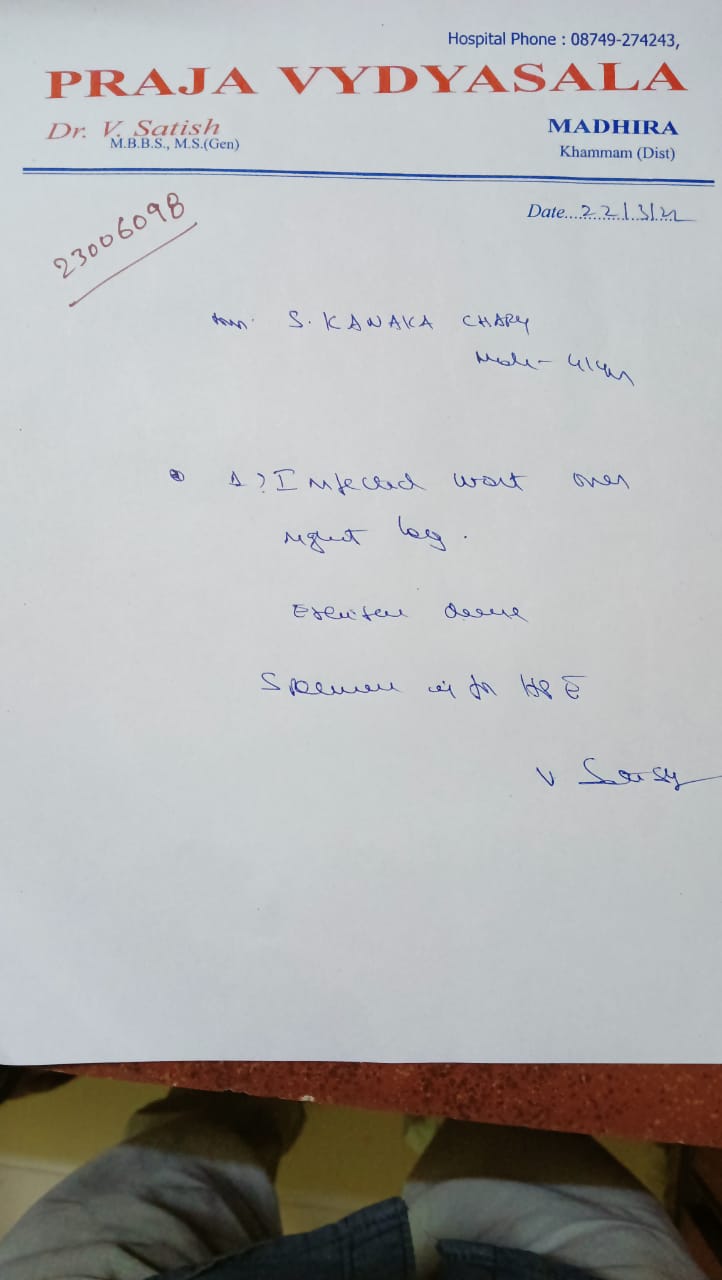 Hospital Phone : 08749-274243,
PRAJA VYDYASALA
Dr. V. Satish
M.B.B.S., M.S.(Gen)
MADHIRA
Khammam (Dist)
Date...22/3/22
23006098
S. KANAKA CHARY
Male - 41yrs
? Infected wart over
right leg.
Excision done
Specimen for HPE
V Satish